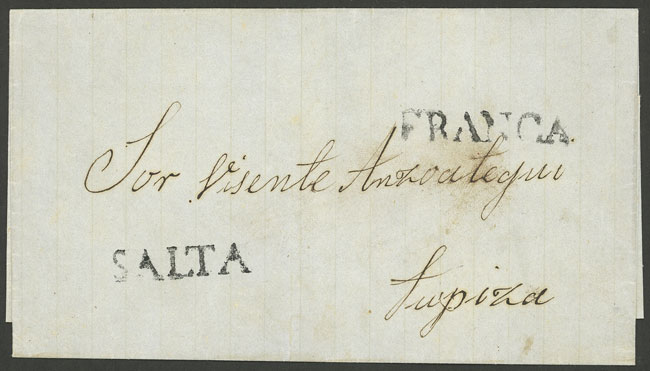 FRANCA
Sor Visente Anzoategui
SALTA
Tupiza